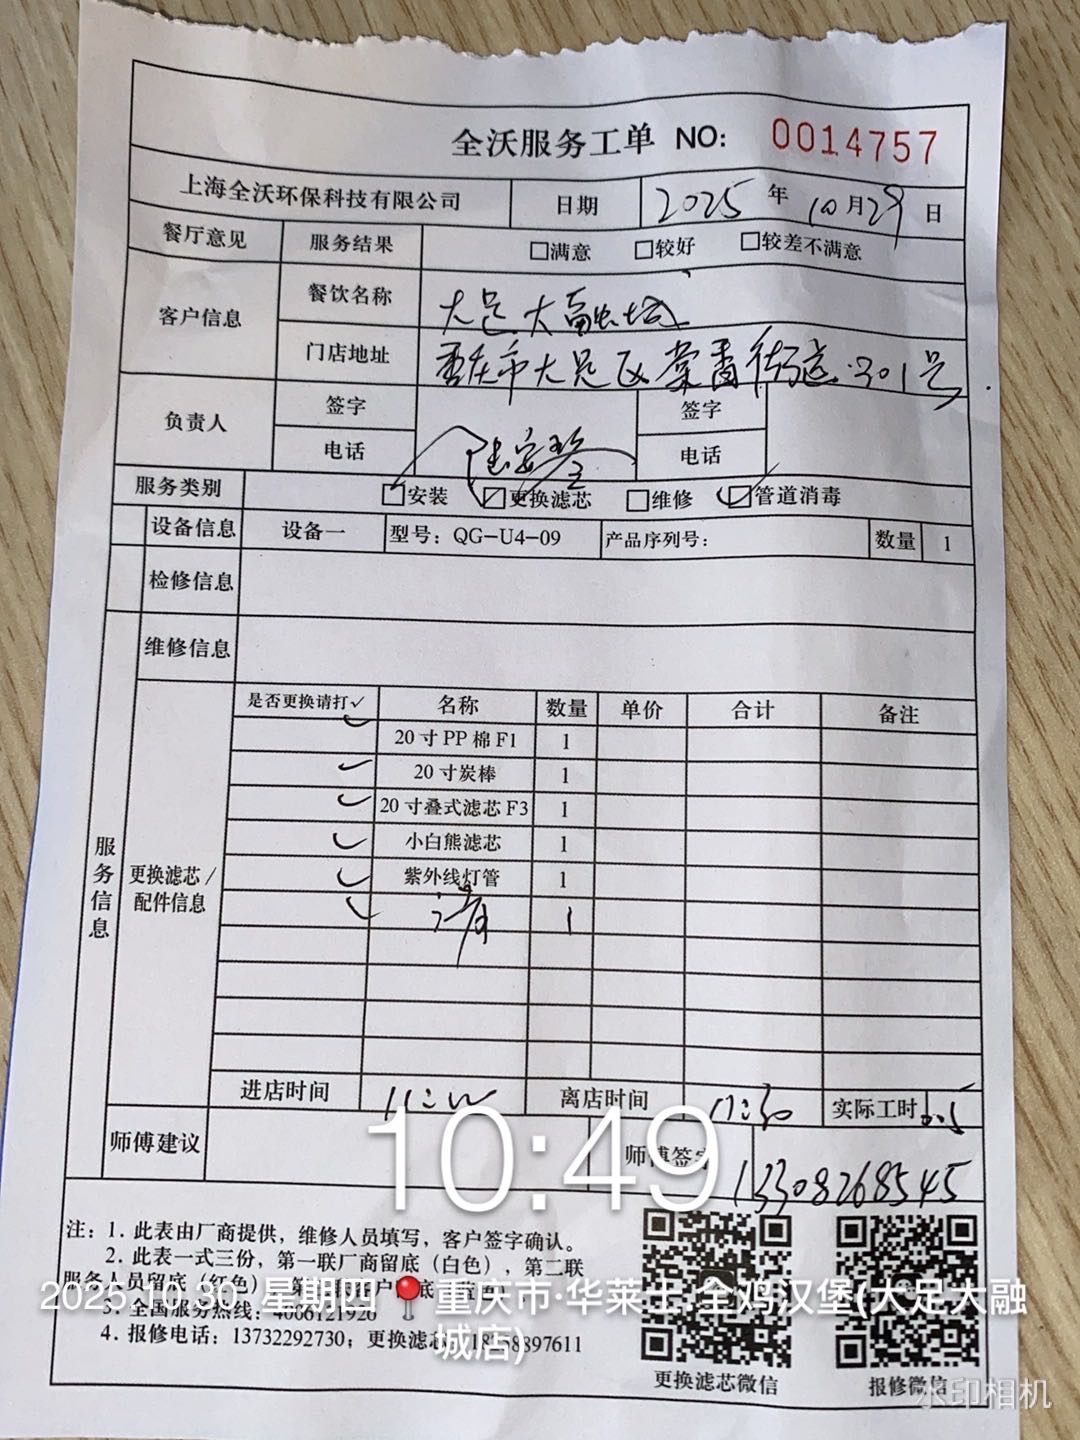 全沃服务工单 NO: 0014757
上海全沃环保科技有限公司 日期 2025 年 10 月 29 日
餐厅意见 服务结果 □满意 □较好 □较差不满意
客户信息 餐饮名称 大足大融城
门店地址 重庆市大足区棠香街道.301号.
负责人 签字 签字
电话 电话
服务类别 ☑安装 ☑更换滤芯 □维修 ☑管道消毒
设备信息 设备一 型号：QG-U4-09 产品序列号： 数量 1
检修信息
维修信息
服务信息
更换滤芯/配件信息
是否更换请打✓ 名称 数量 单价 合计 备注
✓ 20寸PP棉F1 1
✓ 20寸炭棒 1
✓ 20寸叠式滤芯F3 1
✓ 小白熊滤芯 1
✓ 紫外线灯管 1
✓ 1
进店时间 离店时间 实际工时 0.5
师傅建议 师傅签字 13308268545
注：1. 此表由厂商提供，维修人员填写，客户签字确认。
2. 此表一式三份，第一联厂商留底（白色），第二联
服务人员留底（红色）
3. 全国服务热线：4006121926
4. 报修电话：13732292730；更换滤芯
更换滤芯微信 报修微信
10:49
2025.10.30 星期四 重庆市·华莱士·全鸡汉堡(大足大融
城店)
水印相机